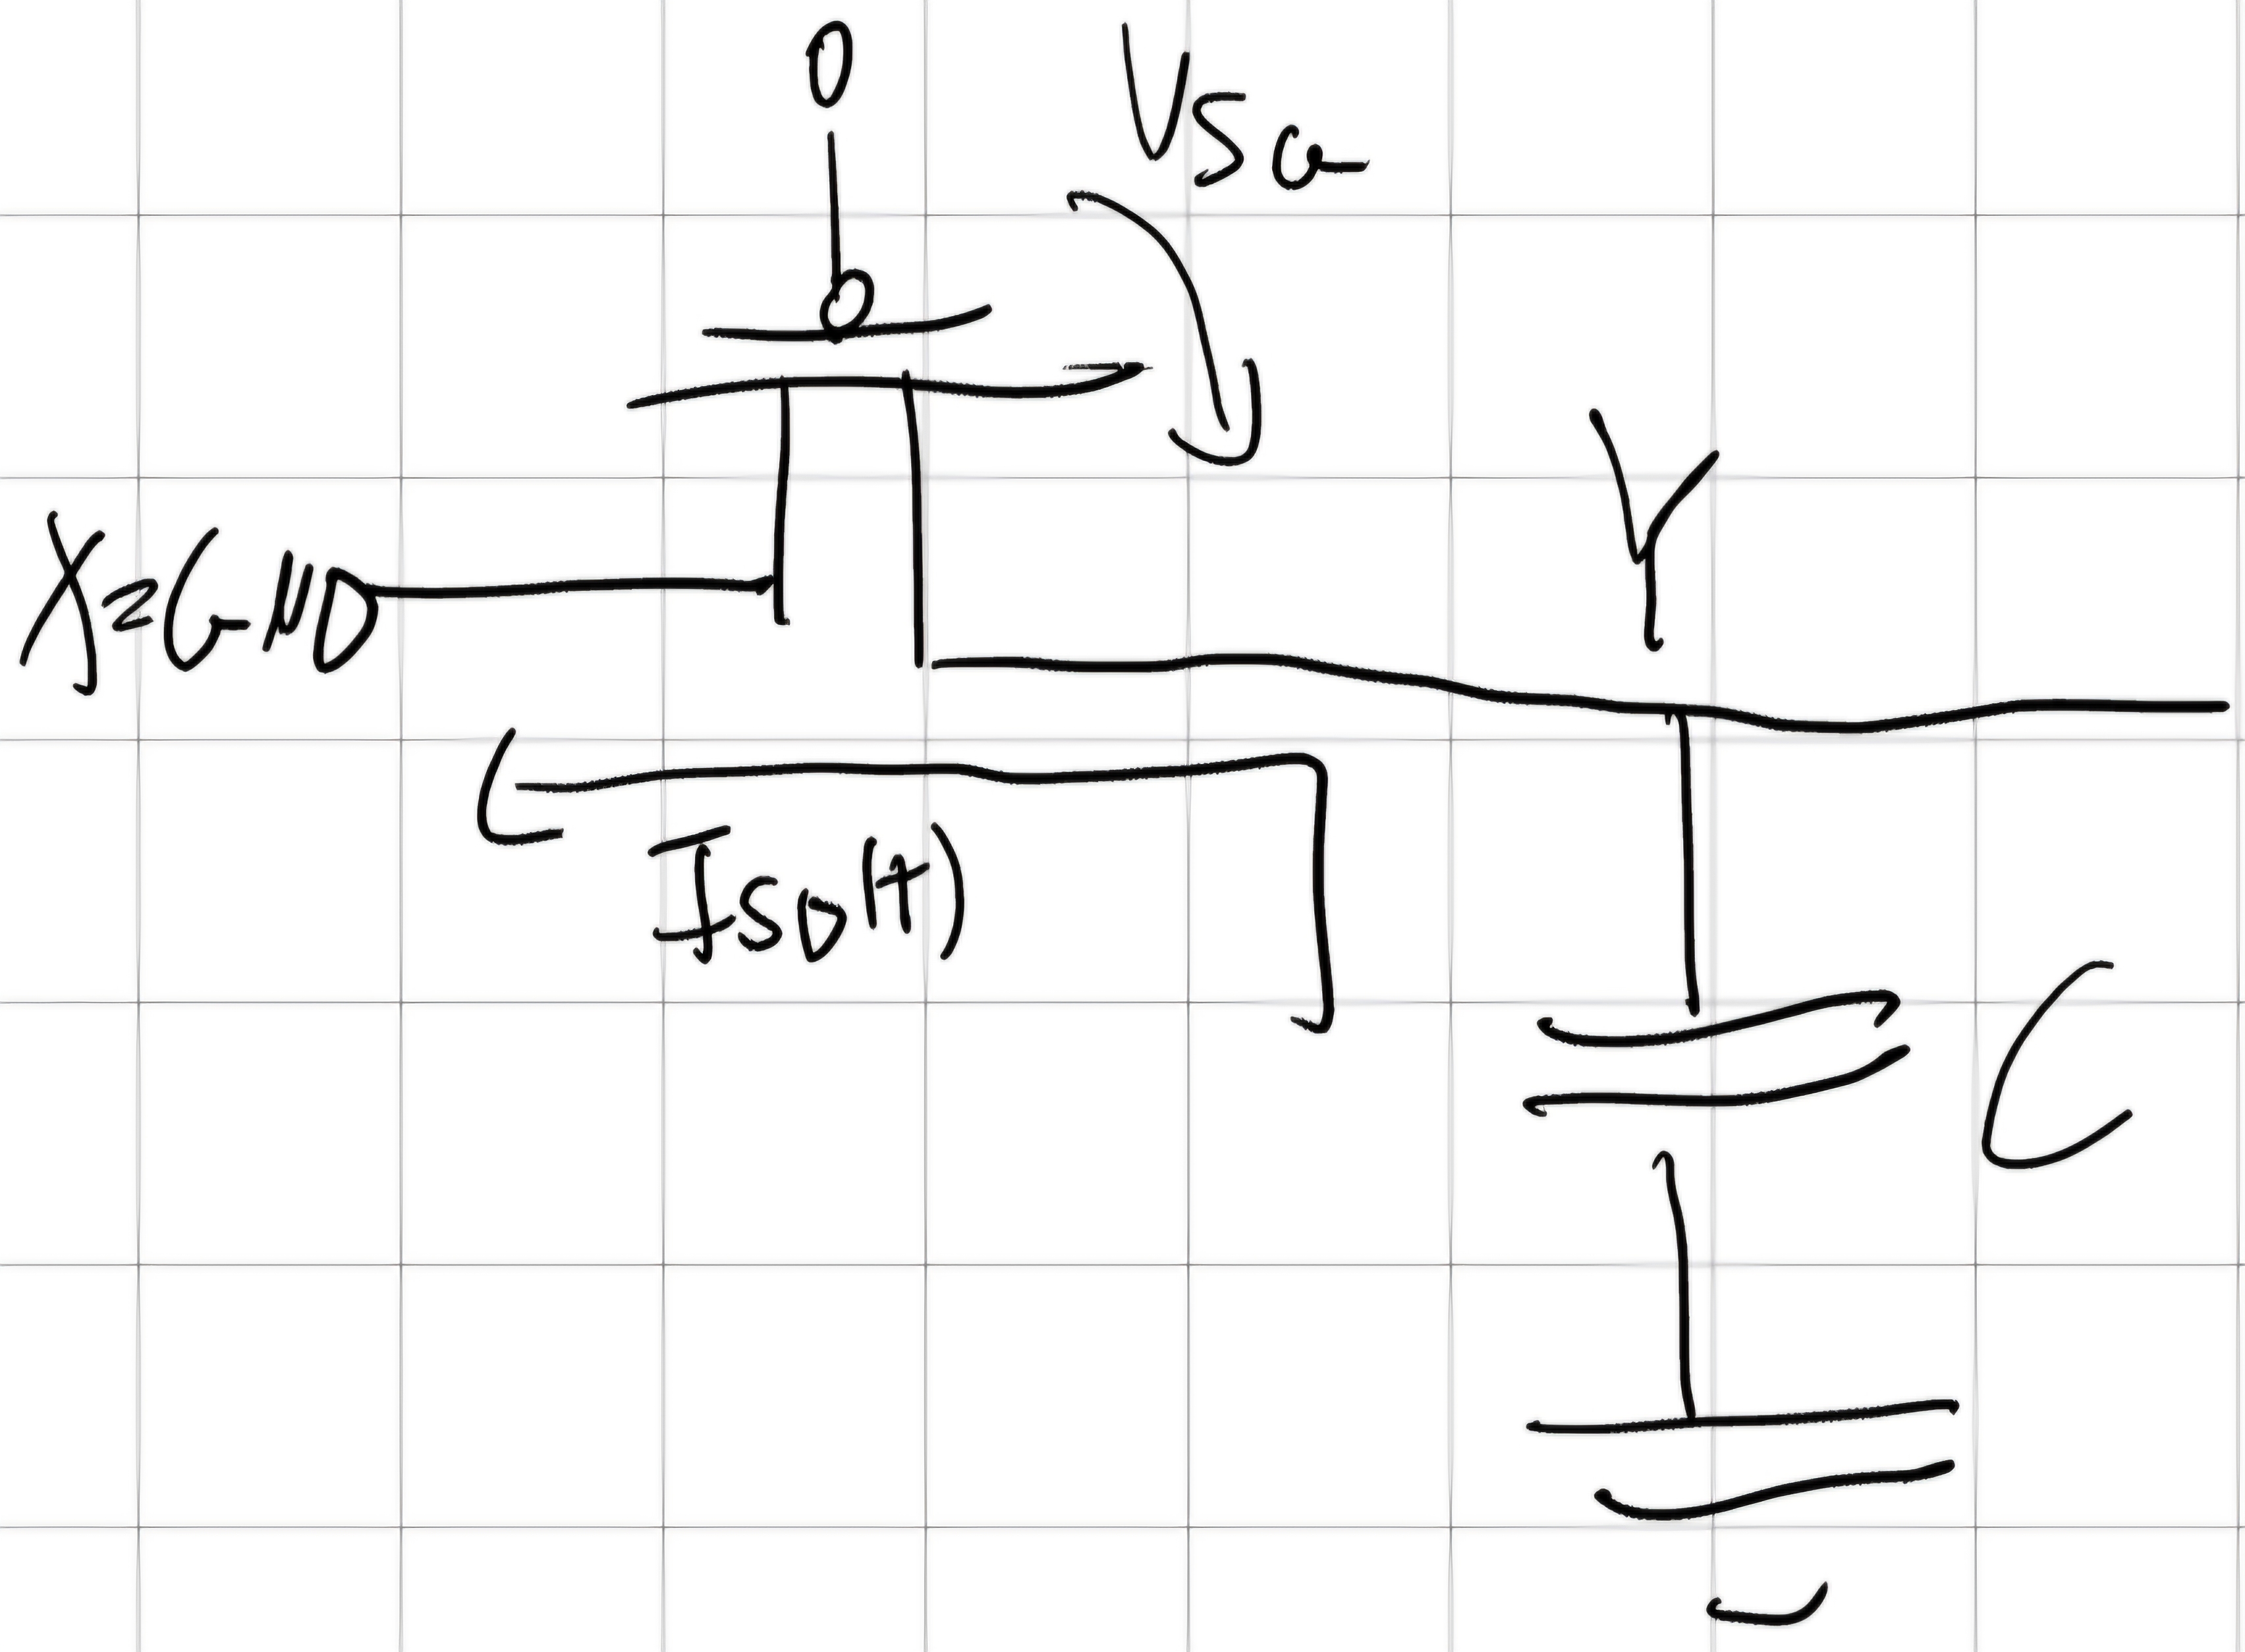 0
VSG
Y
X=GND
ISD(t)
C